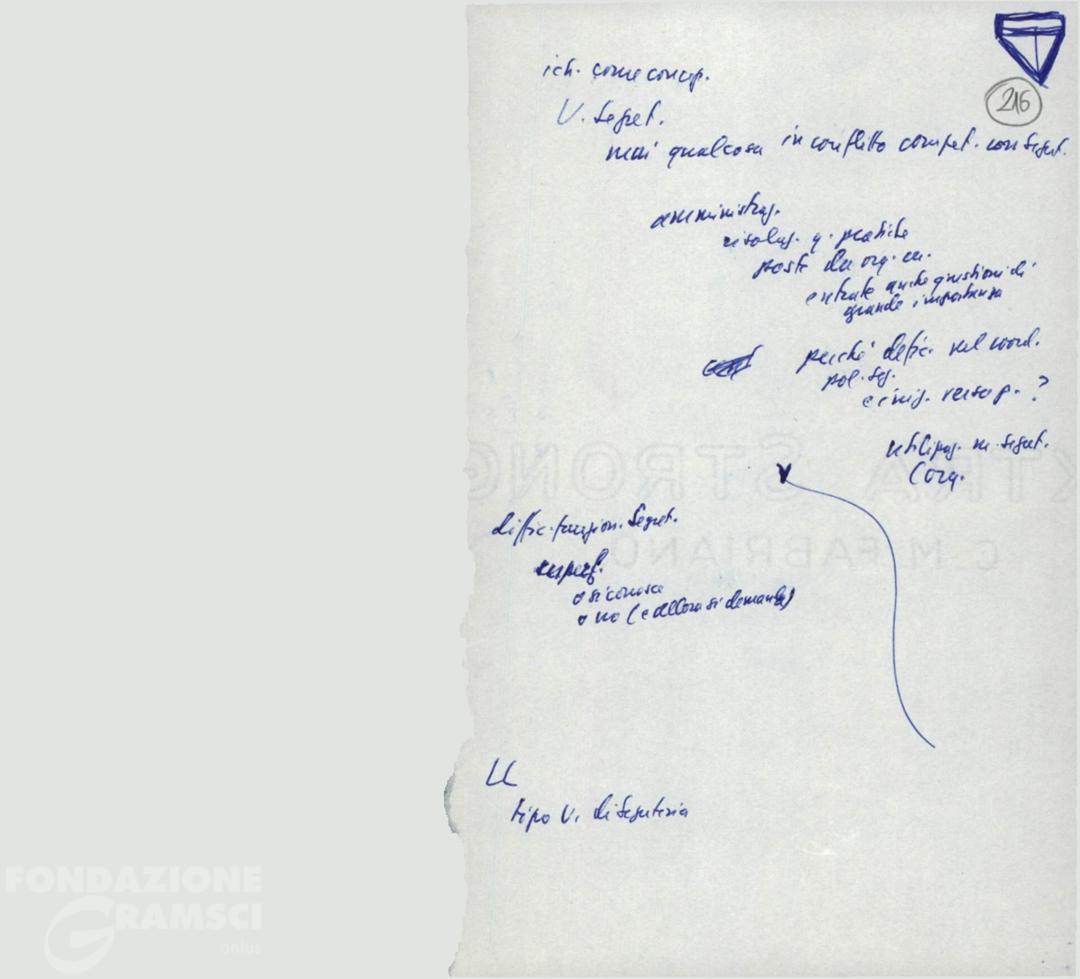 216
ich. come concep.
V. Segret.
mai qualcosa in conflitto compet. con Segret.
amministraz.
risoluz. q. pratiche
poste da org.
entrate anche questioni di
grande importanza
perché defic. nel coord.
pol. seg.
e iniz. verso p. ?
utilizzaz. Segret.
(org.
diffic. funzion. Segret.
o si conosce
o no (e allora si demanda)
U
tipo U. di Segreteria
EXTRA STRONG
C.M. FABRIANO
FONDAZIONE
GRAMSCI
onlus